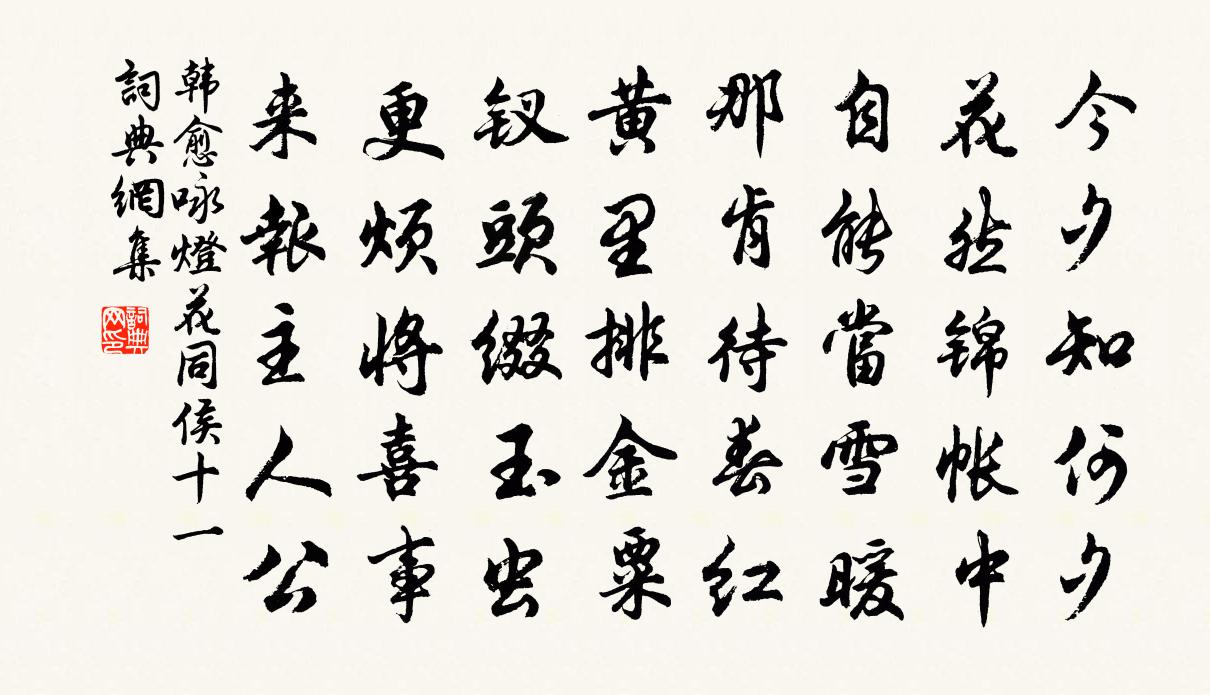 今夕知何夕
花然锦帐中
自能當雪暖
那肯待春红
黄里排金粟
钗頭缀玉虫
更烦将喜事
来報主人公
韩愈咏燈花同侯十一
詞典網集
詞典网印